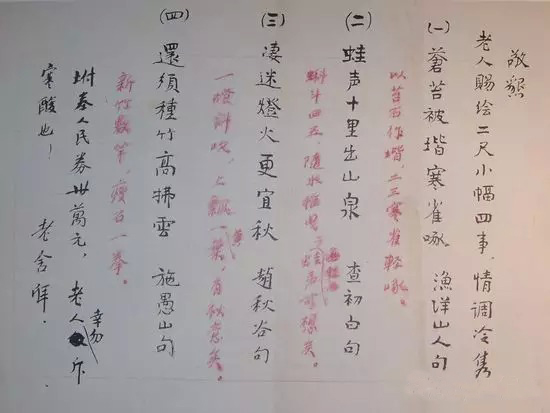 敬懇
老人賜绘二尺小幅四事,情調冷雋
(一) 蒼苔被堦寒雀啄 漁洋山人句
以苔石作堦,二三寒雀輕啄。
(二) 蛙声十里出山泉 查初白句
蝌斗四五,隨水摇曳;蛙声可想矣。
(三) 凄迷燈火更宜秋 趙秋谷句
一燈斜吹,上飄一葉,有秋意矣。
(四) 還須種竹高拂雲 施愚山句
新竹數竿,瘦石一拳。
坿奉人民券卅萬元,老人幸勿斥
寒酸也! 老舍拜.